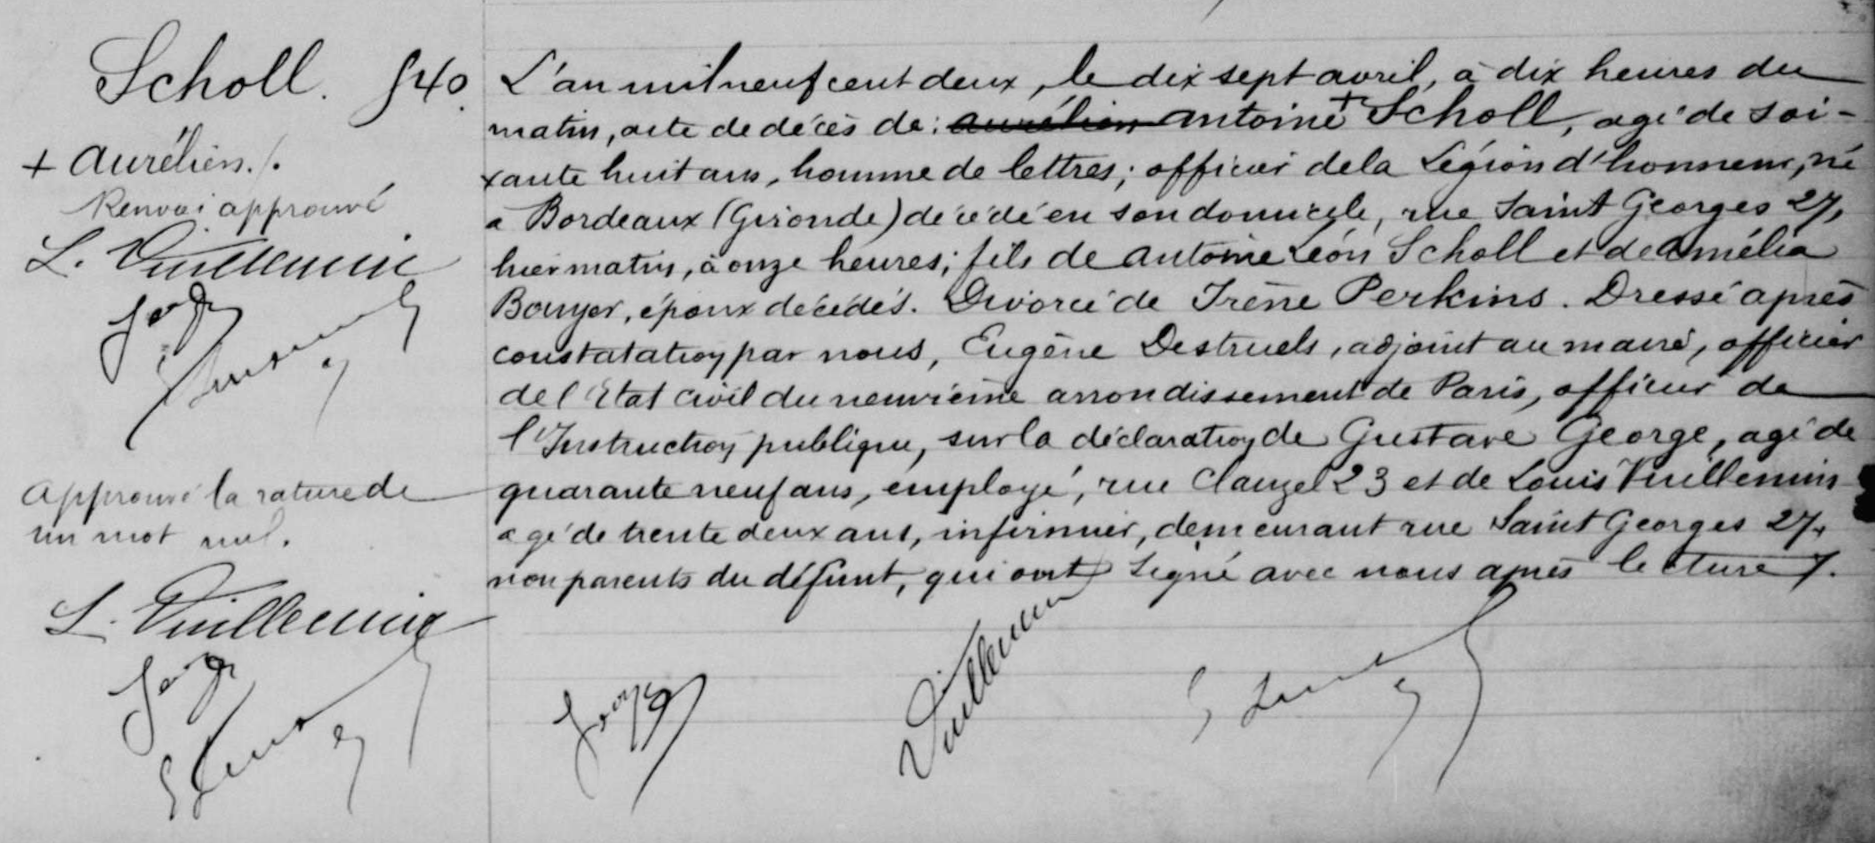 Scholl. 540.
+ Aurélien./.
Renvoi approuvé
L. Vuillemin
George
approuvé la rature de
un mot nul.
L. Vuillemin
George
L'an mil neuf cent deux, le dix sept avril, à dix heures du
matin, acte de décès de: aurélien antoine + Scholl, agé de soi-
xante huit ans, homme de lettres; officier de la Légion d'honneur, né
a Bordeaux (Gironde) décédé en son domicile, rue Saint Georges 27,
hier matin, à onze heures; fils de antoine Léon Scholl et de amélia
Bouyer, époux décédés. Divorcé de Irène Perkins. Dressé après
constatation par nous, Eugène Destruels, adjoint au maire, officier
de l'Etat civil du neuvième arrondissement de Paris, officier de
l'Instruction publique, sur la déclaration de Gustave George, agé de
quarante neuf ans, employé, rue Clauzel 23 et de Louis Vuillemin
agé de trente deux ans, infirmier, demeurant rue Saint Georges 27,
non parents du défunt, qui ont signé avec nous après lecture /.
George Vuillemin